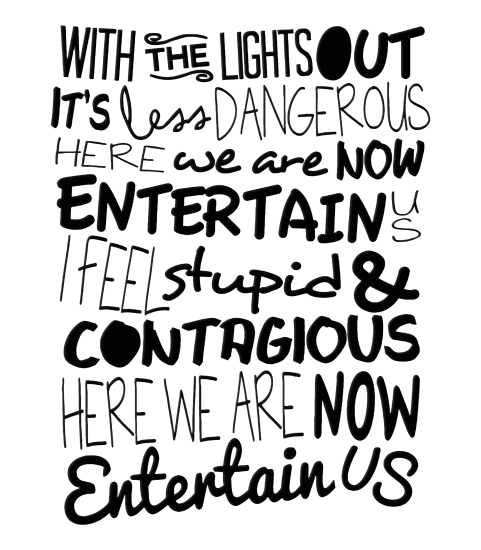 WITH THE LIGHTS OUT
IT'S less DANGEROUS
HERE we are NOW
ENTERTAIN US
I FEEL stupid &
CONTAGIOUS
HERE WE ARE NOW
Entertain US